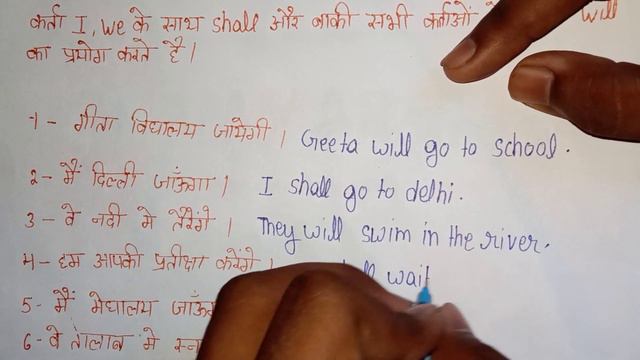 कर्ता I, we के साथ shall और बाकी सभी कर्ताओं will
का प्रयोग करते है।
1- गीता विधालय जायेगी। Geeta will go to school.
2- मैं दिल्ली जाऊँगा। I shall go to delhi.
3- वे नदी मे तैरेंगे। They will swim in the river.
4- हम आपकी प्रतीक्षा करेंगे। wait
5- मैं मेघालय
6- वे तालाब मे